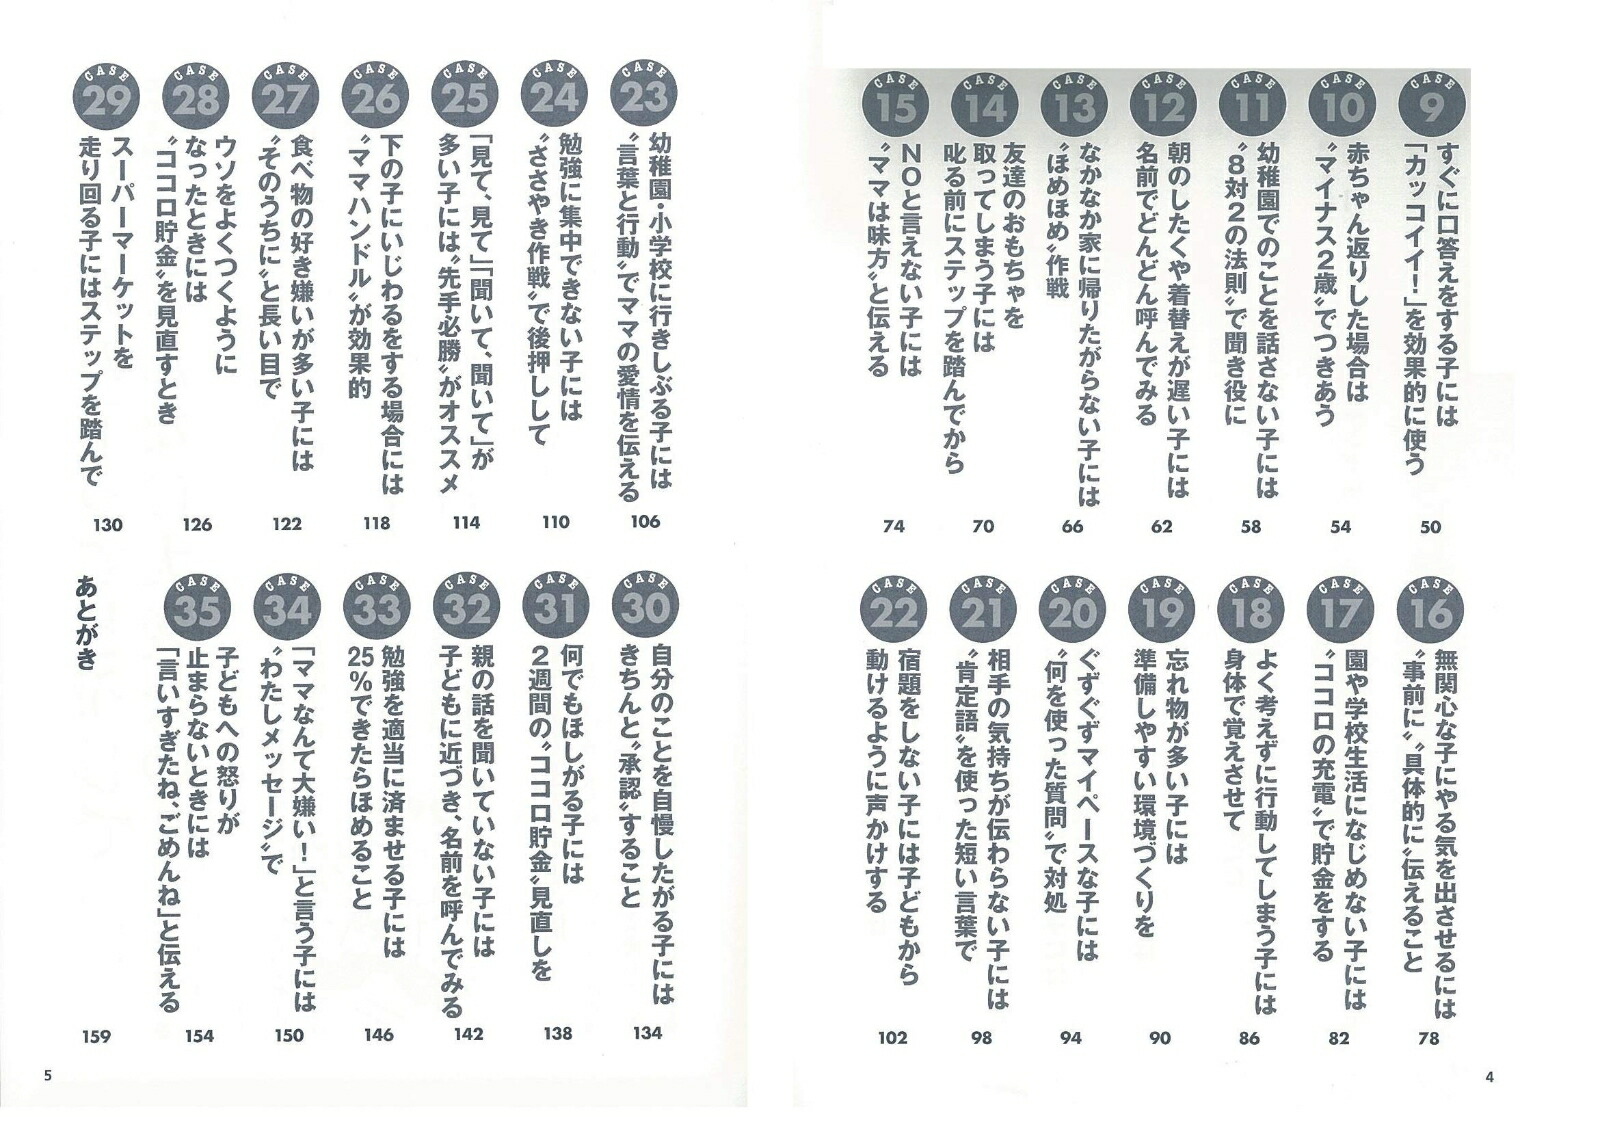 CASE 9
すぐに口答えをする子には
「カッコイイ！」を効果的に使う
50
CASE 10
赤ちゃん返りした場合は
〝マイナス2歳〟でつきあう
54
CASE 11
幼稚園でのことを話さない子には
〝8対2の法則〟で聞き役に
58
CASE 12
朝のしたくや着替えが遅い子には
名前でどんどん呼んでみる
62
CASE 13
なかなか家に帰りたがらない子には
〝ほめほめ〟作戦
66
CASE 14
友達のおもちゃを
取ってしまう子には
叱る前にステップを踏んでから
70
CASE 15
NOと言えない子には
〝ママは味方〟と伝える
74
CASE 16
無関心な子にやる気を出させるには
〝事前に〟〝具体的に〟伝えること
78
CASE 17
園や学校生活になじめない子には
〝ココロの充電〟で貯金をする
82
CASE 18
よく考えずに行動してしまう子には
身体で覚えさせて
86
CASE 19
忘れ物が多い子には
準備しやすい環境づくりを
90
CASE 20
ぐずぐずマイペースな子には
〝何を使った質問〟で対処
94
CASE 21
相手の気持ちが伝わらない子には
〝肯定語〟を使った短い言葉で
98
CASE 22
宿題をしない子には子どもから
動けるように声かけする
102
4
CASE 23
幼稚園・小学校に行きしぶる子には
〝言葉と行動〟でママの愛情を伝える
106
CASE 24
勉強に集中できない子には
〝ささやき作戦〟で後押しして
110
CASE 25
「見て、見て」「聞いて、聞いて」が
多い子には〝先手必勝〟がオススメ
114
CASE 26
下の子にいじわるをする場合には
〝ママハンドル〟が効果的
118
CASE 27
食べ物の好き嫌いが多い子には
〝そのうちに〟と長い目で
122
CASE 28
ウソをよくつくように
なったときには
〝ココロ貯金〟を見直すとき
126
CASE 29
スーパーマーケットを
走り回る子にはステップを踏んで
130
CASE 30
自分のことを自慢したがる子には
きちんと〝承認〟すること
134
CASE 31
何でもほしがる子には
2週間の〝ココロ貯金〟見直しを
138
CASE 32
親の話を聞いていない子には
子どもに近づき、名前を呼んでみる
142
CASE 33
勉強を適当に済ませる子には
25％できたらほめること
146
CASE 34
「ママなんて大嫌い！」と言う子には
〝わたしメッセージ〟で
150
CASE 35
子どもへの怒りが
止まらないときには
「言いすぎたね、ごめんね」と伝える
154
あとがき
159
5